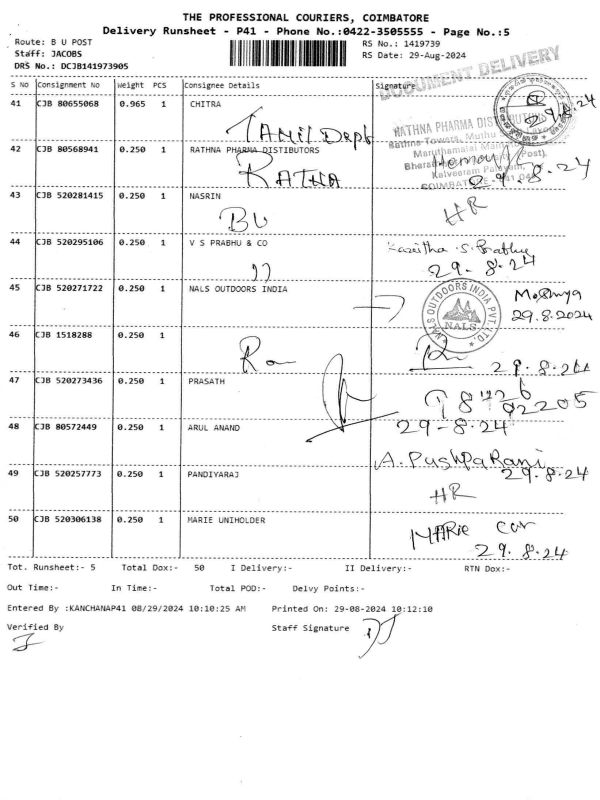 THE PROFESSIONAL COURIERS, COIMBATORE
Delivery Runsheet - P41 - Phone No.:0422-3505555 - Page No.:5
Route: B U POST
RS No.: 1419739
Staff: JACOBS
RS Date: 29-Aug-2024
DRS No.: DCJB141973905
DOCUMENT DELIVERY
S No Consignment No Weight PCS Consignee Details Signature
41 CJB 80655068 0.965 1 CHITRA
29.8.24
Tamil Dept
RATHNA PHARMA DISTIBUTORS
42 CJB 80568941 0.250 1 RATHNA PHARMA DISTIBUTORS
RATHA
29.8.24
43 CJB 520281415 0.250 1 NASRIN
BU
HR
44 CJB 520295106 0.250 1 V S PRABHU & CO
Kavitha .S. Prabhu
29.8.24
45 CJB 520271722 0.250 1 NALS OUTDOORS INDIA
NALS OUTDOORS INDIA PVT. LTD.
NALS
29.8.2024
46 CJB 1518288 0.250 1
29.8.24
47 CJB 520273436 0.250 1 PRASATH
92205
48 CJB 80572449 0.250 1 ARUL ANAND
29-8.24
A. PushpaRani
49 CJB 520257773 0.250 1 PANDIYARAJ
29.8.24
HR
50 CJB 520306138 0.250 1 MARIE UNIHOLDER
MARIE
29.8.24
Tot. Runsheet:- 5 Total Dox:- 50 I Delivery:- II Delivery:- RTN Dox:-
Out Time:- In Time:- Total POD:- Delvy Points:-
Entered By :KANCHANAP41 08/29/2024 10:10:25 AM Printed On: 29-08-2024 10:12:10
Verified By Staff Signature